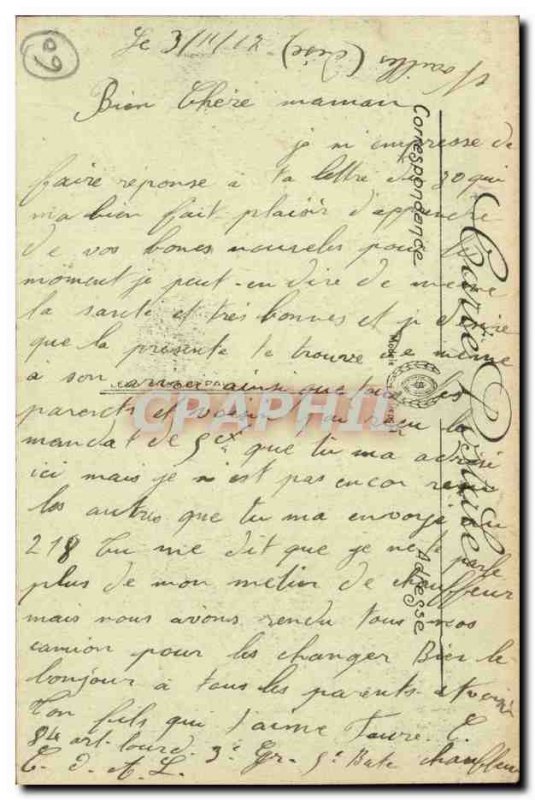 09
Le 3/11/17 (Oise)
Bien Chère maman
je m'empresse de
faire reponse à ta lettre du 30 qui
ma bien fait plaisir d'apprendre
de vos bones nouvelles pour le
moment je peut-en dire de meme
la santé et très bonnes et j'espère
que la présente te trouve de meme
à son arrivée ainsi que tous les
parents et voisins j'ai reçu le
mandat de 5 que tu ma adressé
ici mais je n'est pas encor recu
les autres que tu ma envoyé au
218 tu me dit que je ne te parle
plus de mon metier de chauffeur
mais nous avons rendu tous nos
camion pour les changer Bien le
bonjour à tous les parents et voisin
Ton fils qui t'aime Faure. C.
84 art. lourd. 3e Gr. 5e Bate chauffeur
C. d. A. L.
Carte Postale
Correspondance
Adresse
CPAPHIL